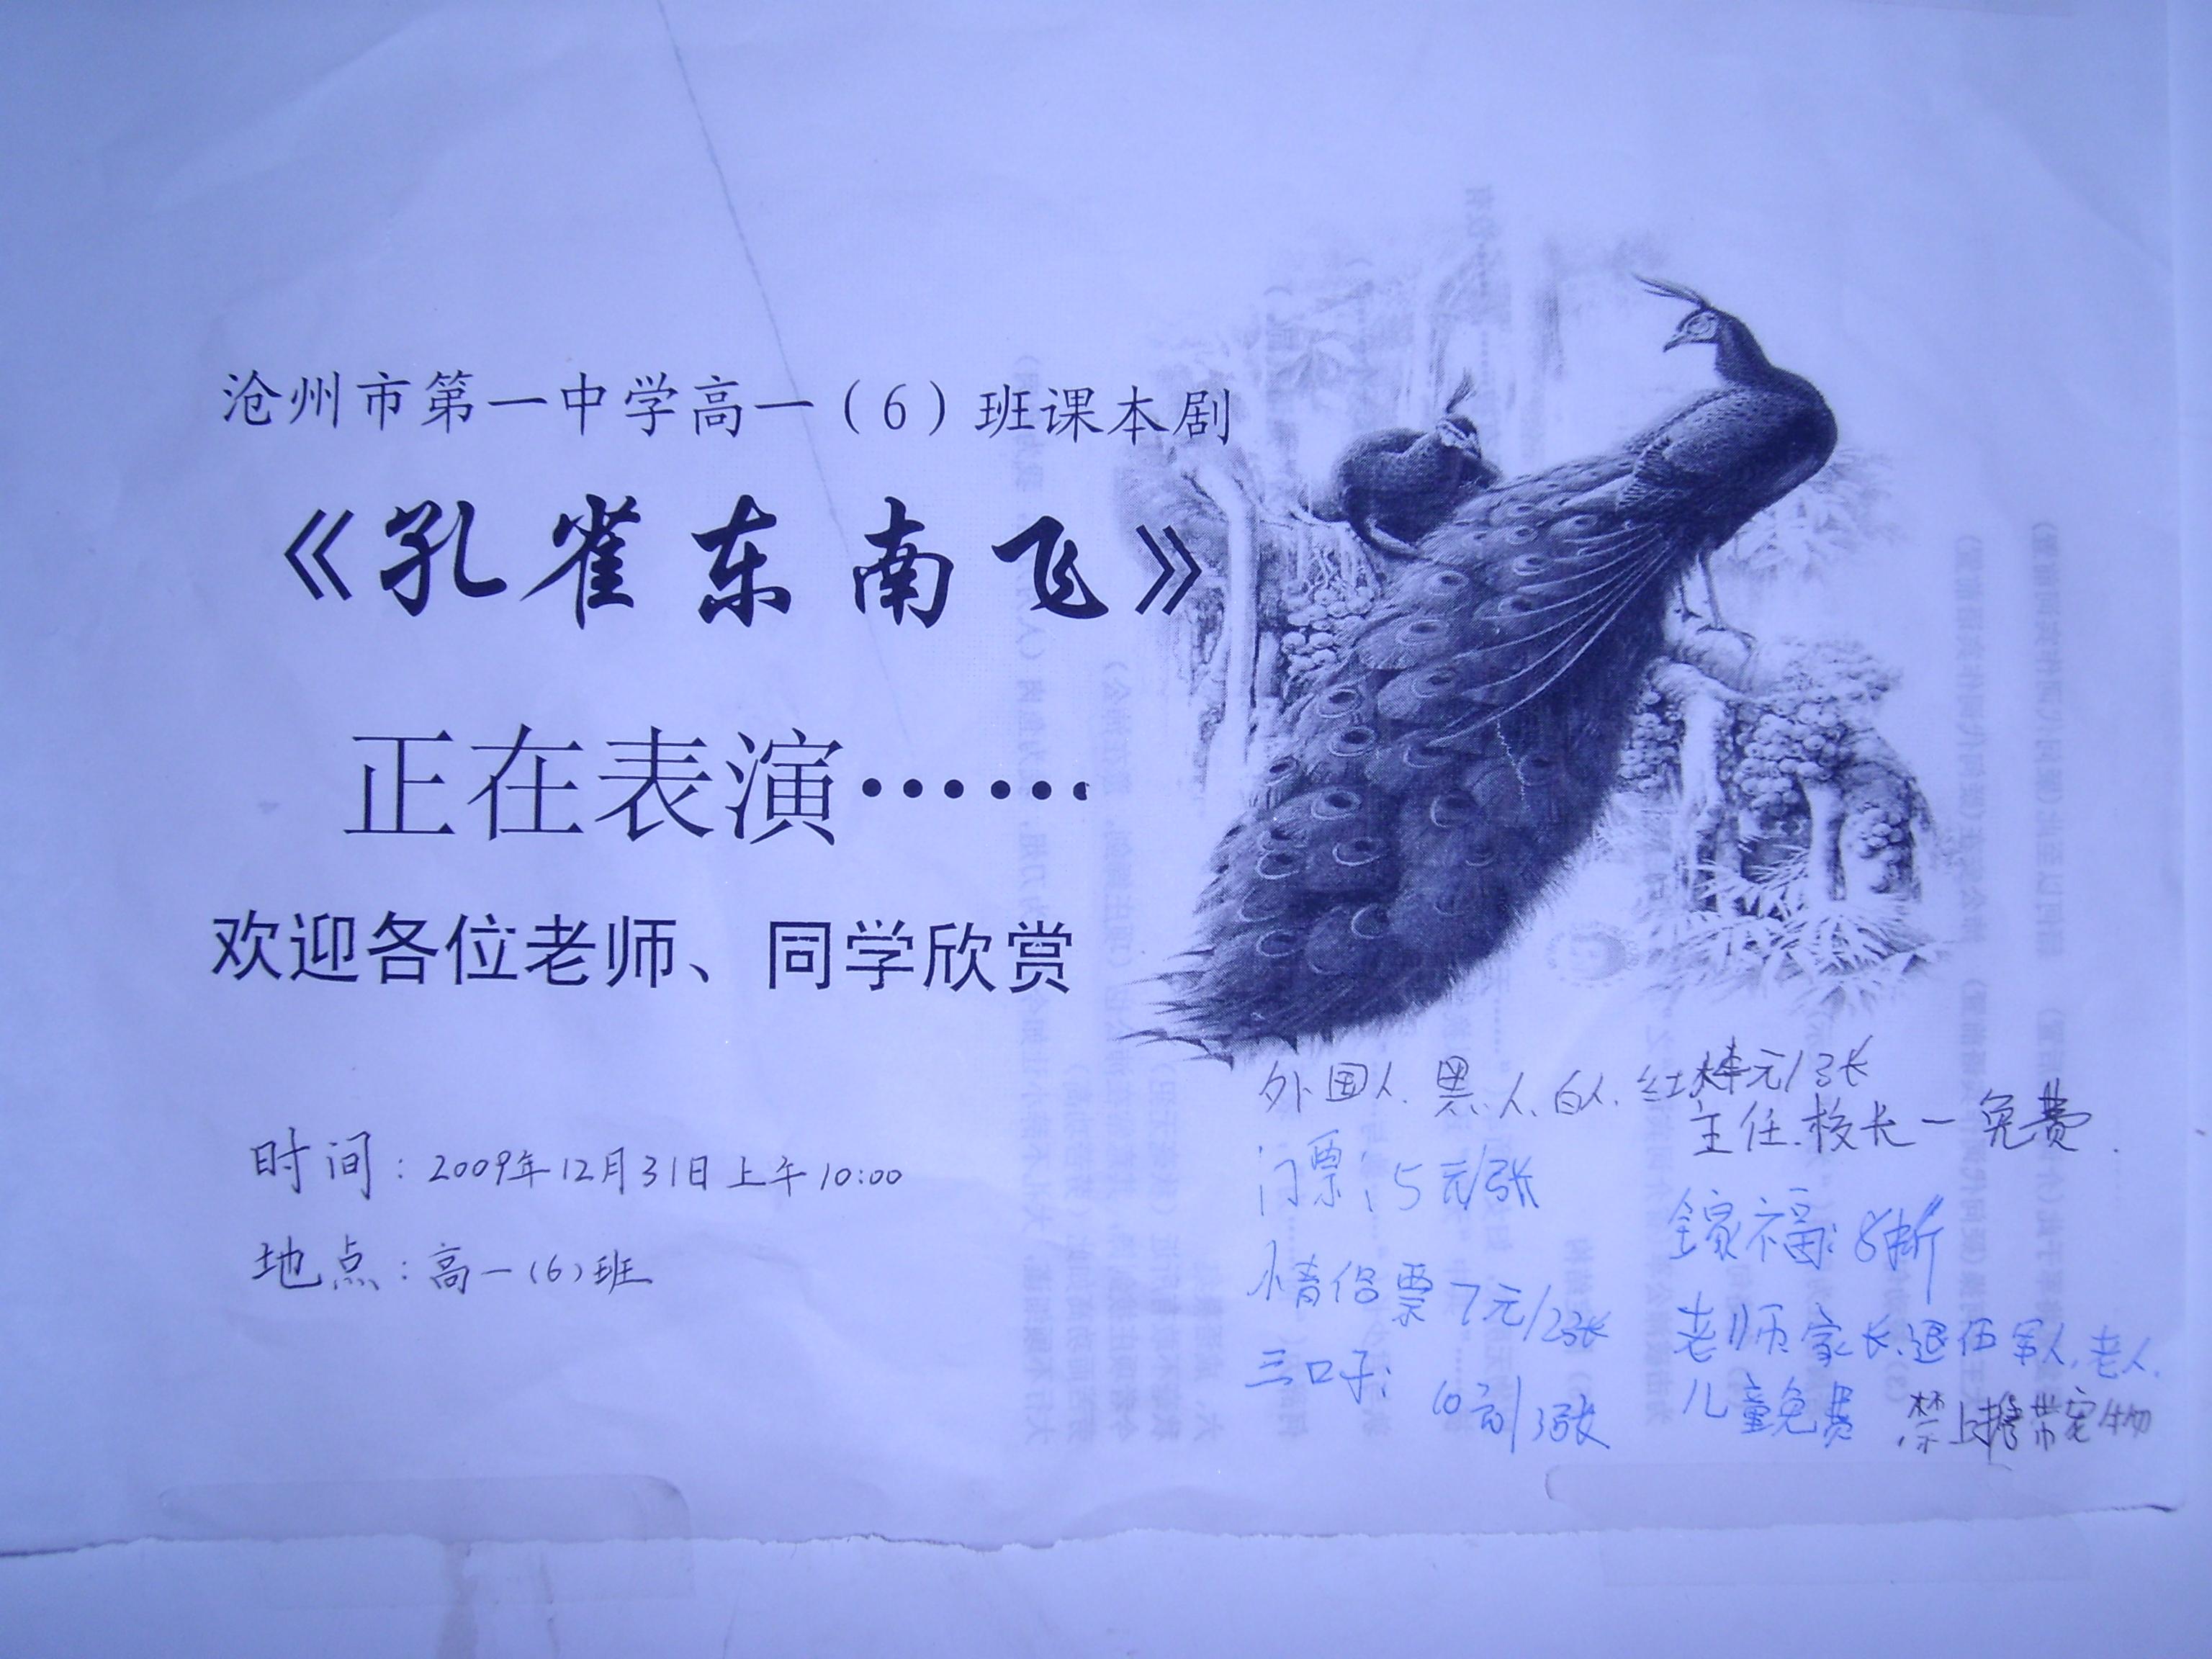 沧州市第一中学高一（6）班课本剧
《孔雀东南飞》
正在表演……
欢迎各位老师、同学欣赏
时间：2009年12月31日上午10:00
地点：高一(6)班
外国人.黑人.白人.红
元/张
主任.校长一免费.
门票：5元/张
全家福：8折
情侣票 7元/2张
老师.家长.退伍军人.老人.
三口子：
10元/3张
儿童免费
禁止携带宠物